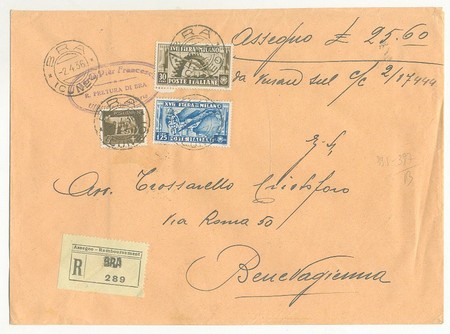 BRA
-2.4.36
(CUNEO)
R. PRETURA DI BRA
XVII FIERA DI MILANO
POSTE ITALIANE
BRA
XVII FIERA DI MILANO
1,25 POSTE ITALIANE
Assegno £ 25.60
da versare sul c/c 2/17444
Avv. Trossarello Cristoforo
Via Roma 50
Benevagienna
Assegno - Remboursement
R BRA
289